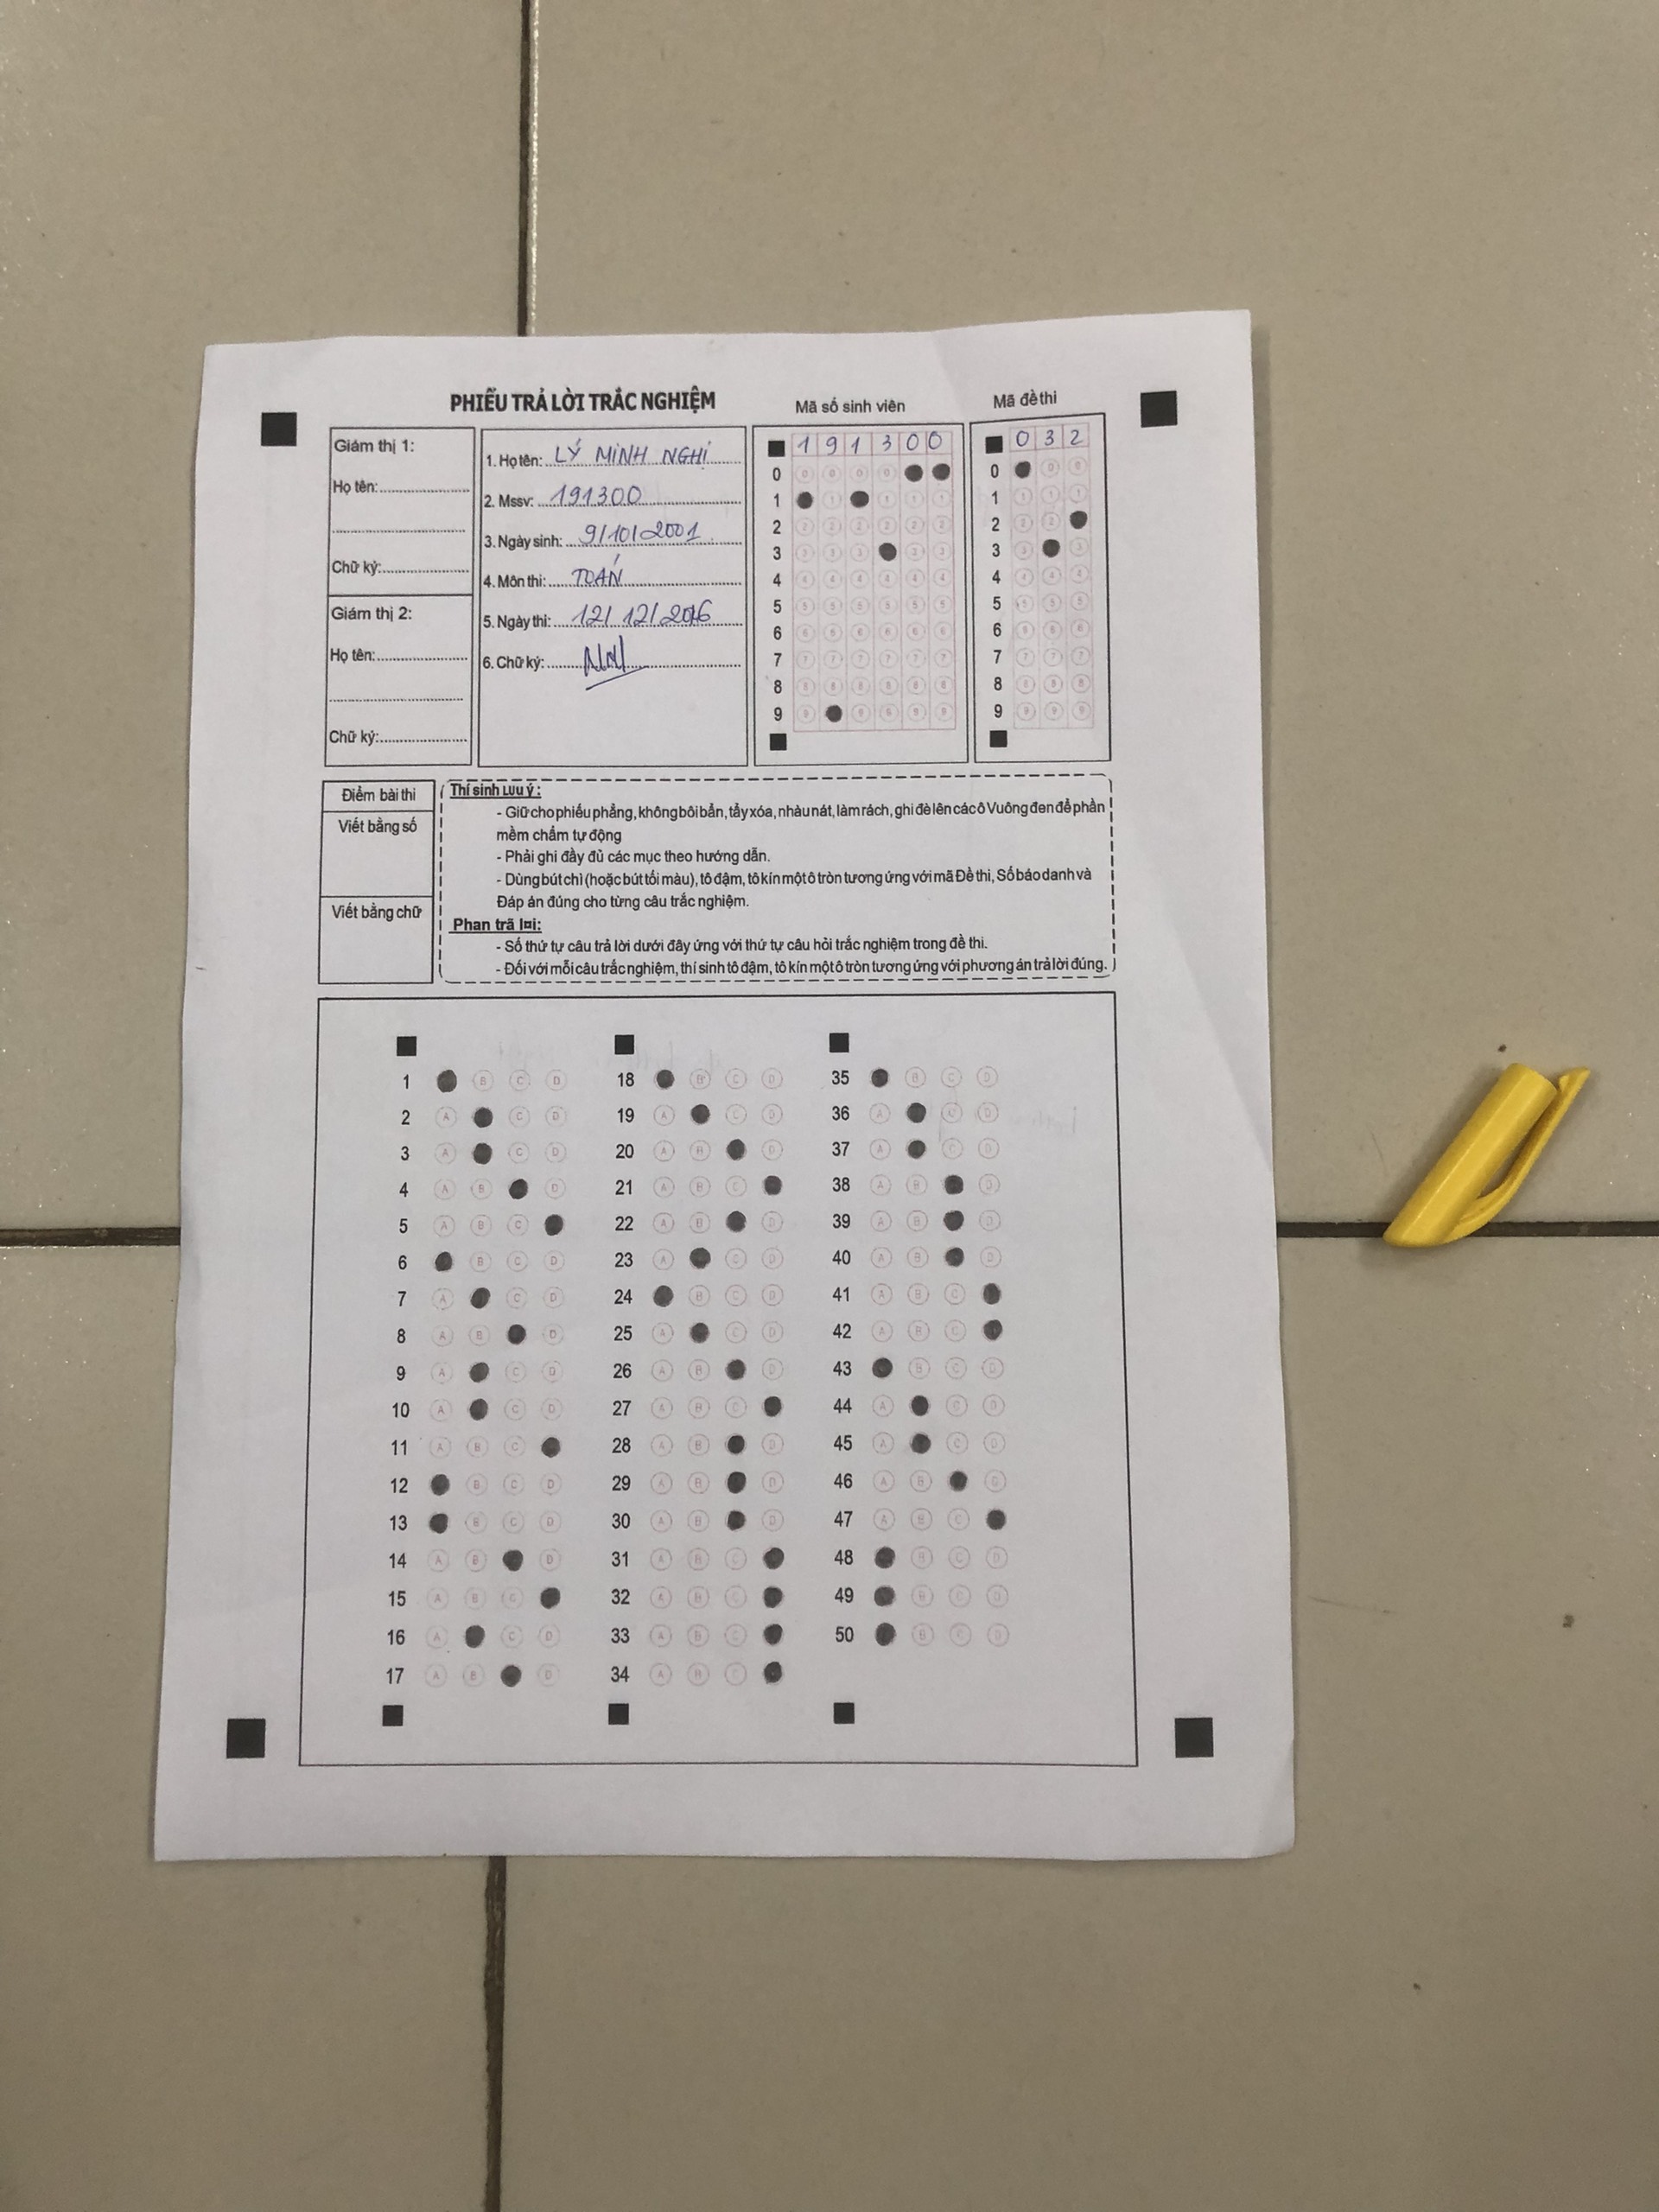 PHIẾU TRẢ LỜI TRẮC NGHIỆM
Mã số sinh viên
Mã đề thi
Giám thị 1:
Họ tên:
Chữ ký:
Giám thị 2:
Họ tên:
Chữ ký:
1. Họ tên: LÝ MINH NGHI
2. Mssv: 191300
3. Ngày sinh: 9/10/2001
4. Môn thi: TOÁN
5. Ngày thi: 12/12/2016
6. Chữ ký:
1 9 1 3 0 0
0
1
2
3
4
5
6
7
8
9
0 3 2
0
1
2
3
4
5
6
7
8
9
Điểm bài thi
Viết bằng số
Viết bằng chữ
Thí sinh Lưu ý:
- Giữ cho phiếu phẳng, không bôi bẩn, tẩy xóa, nhàu nát, làm rách, ghi đè lên các ô Vuông đen để phần
mềm chấm tự động
- Phải ghi đầy đủ các mục theo hướng dẫn.
- Dùng bút chì (hoặc bút tối màu), tô đậm, tô kín một ô tròn tương ứng với mã Đề thi, Số báo danh và
Đáp án đúng cho từng câu trắc nghiệm.
Phan trã lơi:
- Số thứ tự câu trả lời dưới đây ứng với thứ tự câu hỏi trắc nghiệm trong đề thi.
- Đối với mỗi câu trắc nghiệm, thí sinh tô đậm, tô kín một ô tròn tương ứng với phương án trả lời đúng.
1 B C D
2 A C D
3 A C D
4 A B D
5 A B C
6 B C D
7 A C D
8 A B D
9 A C D
10 A C D
11 A B C
12 B C D
13 B C D
14 A B D
15 A B C
16 A C D
17 A B D
18 B C D
19 A C D
20 A B D
21 A B C
22 A B D
23 A C D
24 B C D
25 A C D
26 A B D
27 A B C
28 A B D
29 A B D
30 A B D
31 A B C
32 A B C
33 A B C
34 A B C
35 B C D
36 A C D
37 A C D
38 A B D
39 A B D
40 A B D
41 A B C
42 A B C
43 B C D
44 A C D
45 A C D
46 A B D
47 A B C
48 B C D
49 B C D
50 B C D